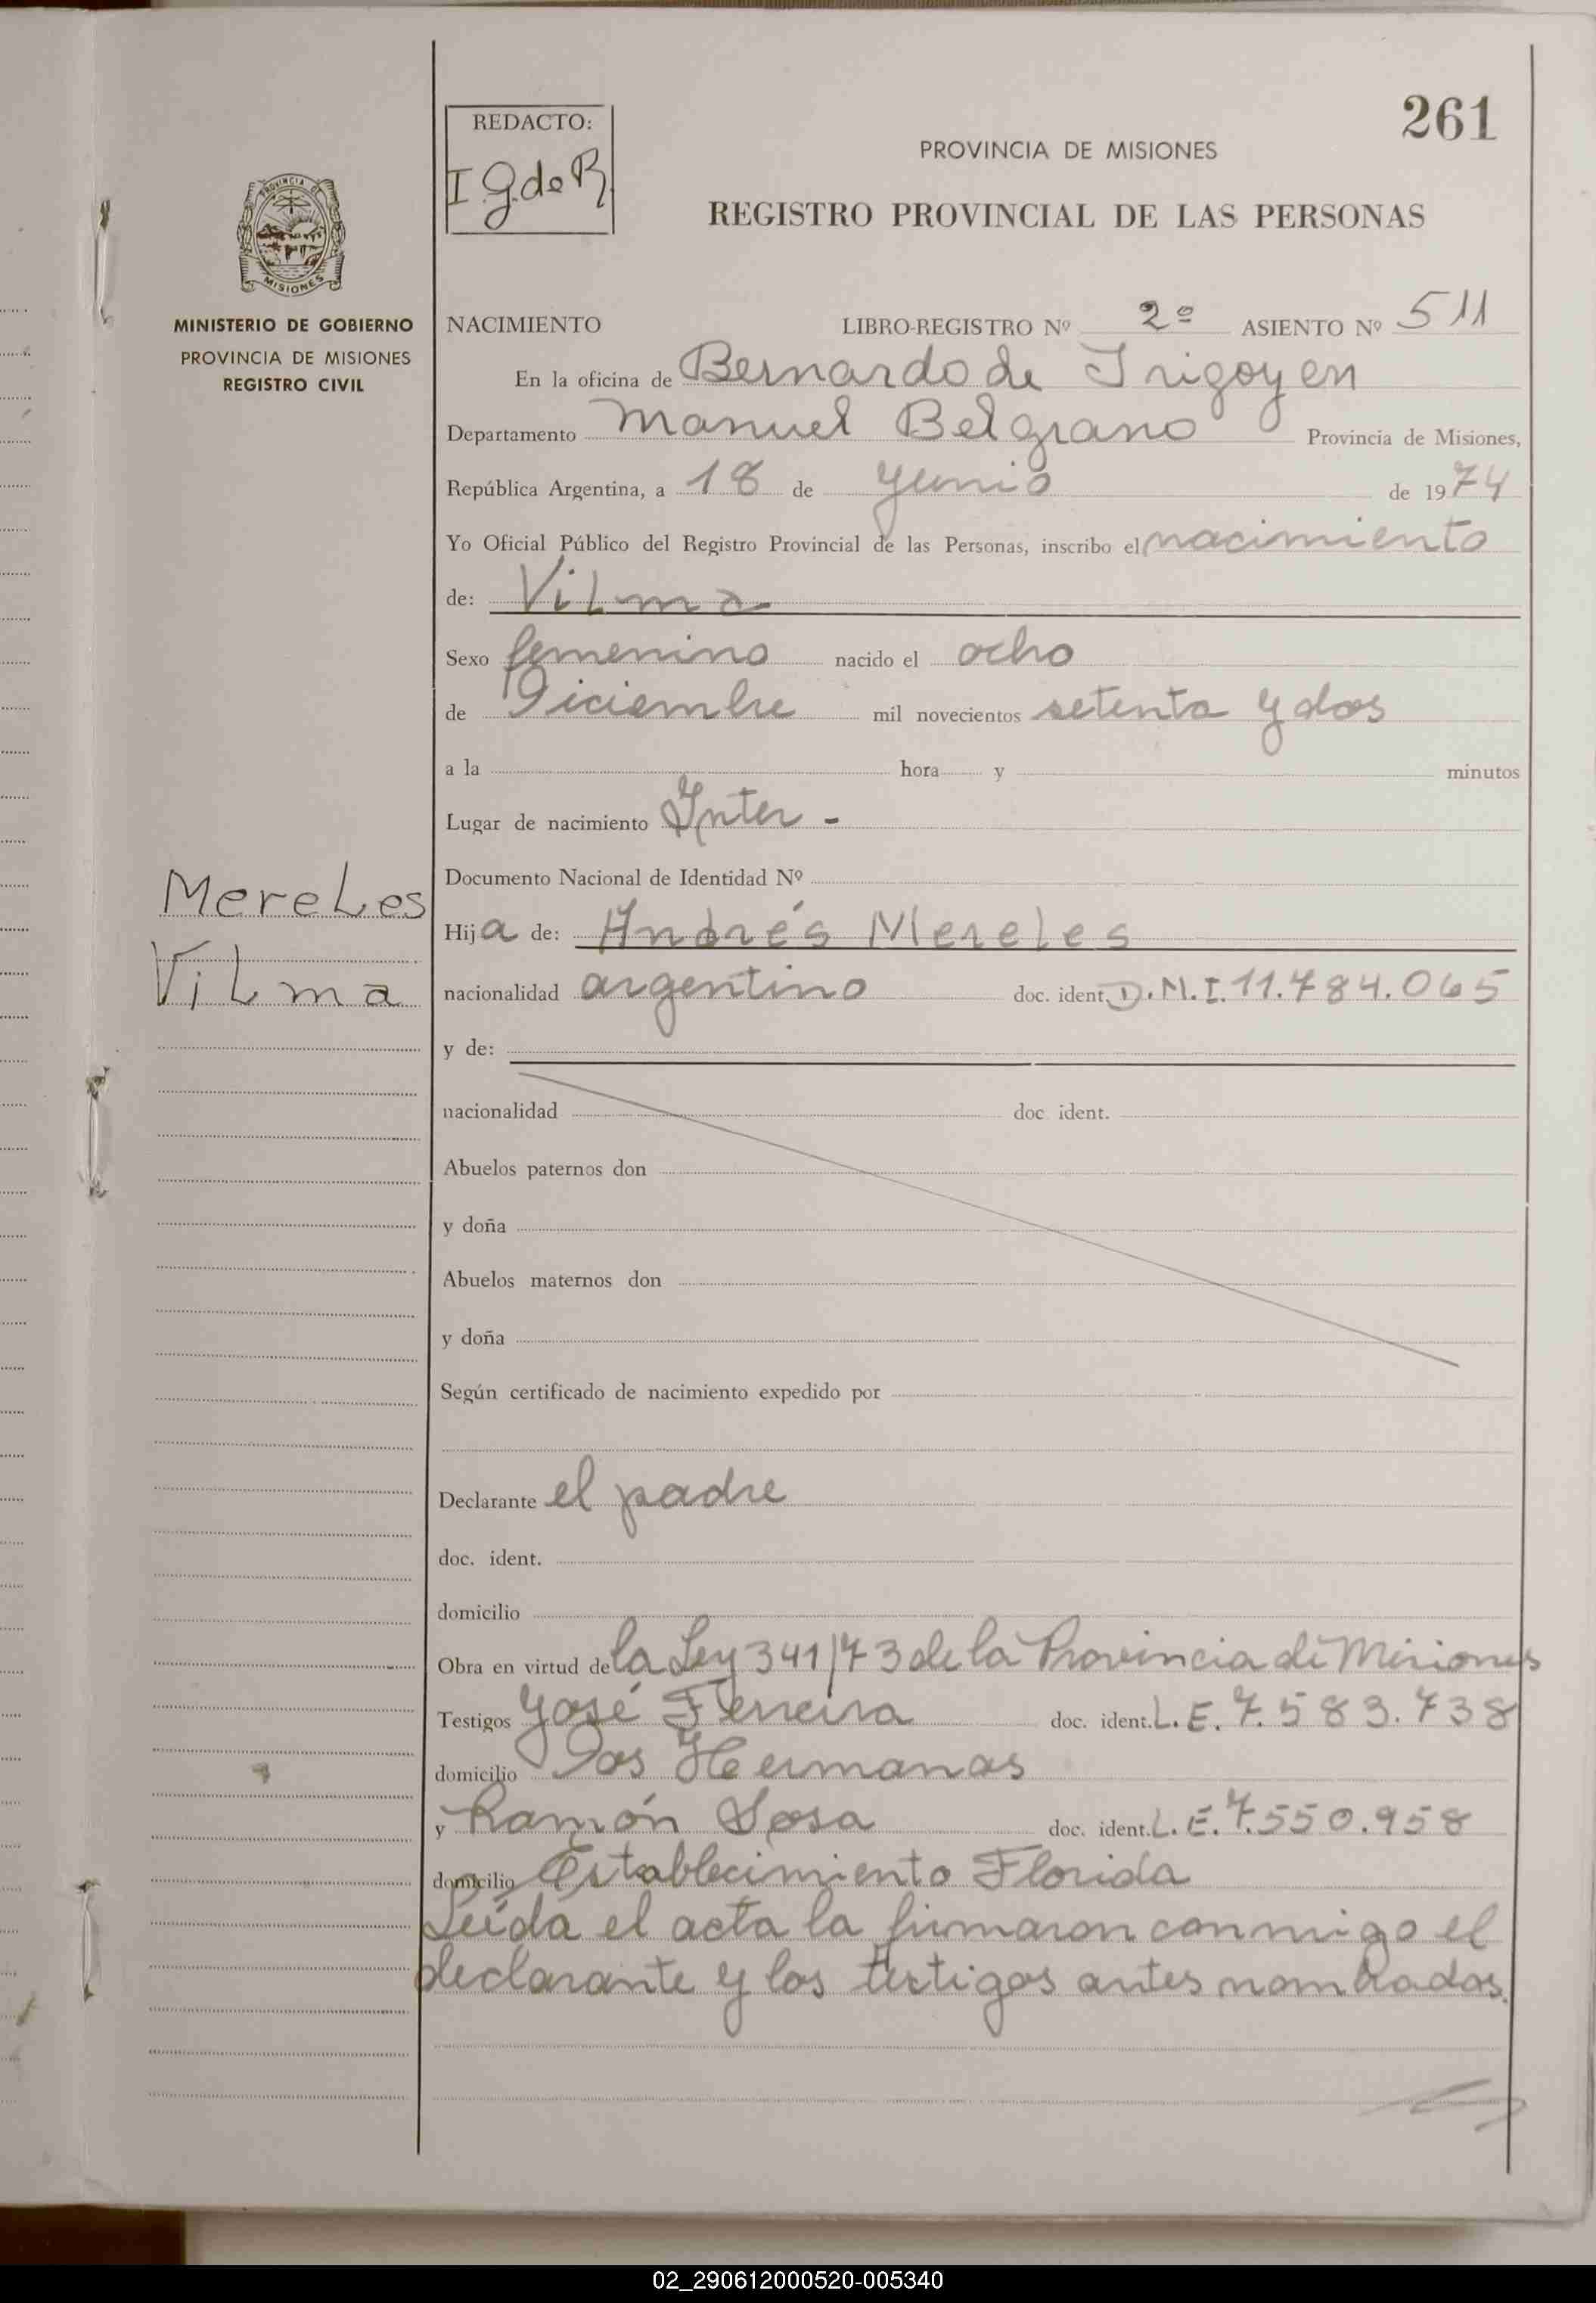 261
REDACTO:
I.G. de R.
PROVINCIA DE MISIONES
REGISTRO PROVINCIAL DE LAS PERSONAS
PROVINCIA DE
MISIONES
MINISTERIO DE GOBIERNO
PROVINCIA DE MISIONES
REGISTRO CIVIL
Mereles
Vilma
NACIMIENTO LIBRO-REGISTRO Nº 2º ASIENTO Nº 511
En la oficina de Bernardo de Irigoyen
Departamento Manuel Belgrano Provincia de Misiones,
República Argentina, a 18 de Junio de 1974
Yo Oficial Público del Registro Provincial de las Personas, inscribo el nacimiento
de: Vilma
Sexo femenino nacido el ocho
de Diciembre mil novecientos setenta y dos
a la hora y minutos
Lugar de nacimiento Inter -
Documento Nacional de Identidad Nº
Hija de: Andrés Mereles
nacionalidad argentino doc. ident. D.N.I. 11.784.065
y de:
nacionalidad doc. ident.
Abuelos paternos don
y doña
Abuelos maternos don
y doña
Según certificado de nacimiento expedido por
Declarante el padre
doc. ident.
domicilio
Obra en virtud de la Ley 341/73 de la Provincia de Misiones
Testigos José Ferreira doc. ident. L.E. 7.583.738
domicilio Dos Hermanas
y Ramón Sosa doc. ident. L.E. 7.550.958
domicilio Establecimiento Florida
Leída el acta la firmaron conmigo el
declarante y los testigos antes nombrados.
02_290612000520-005340